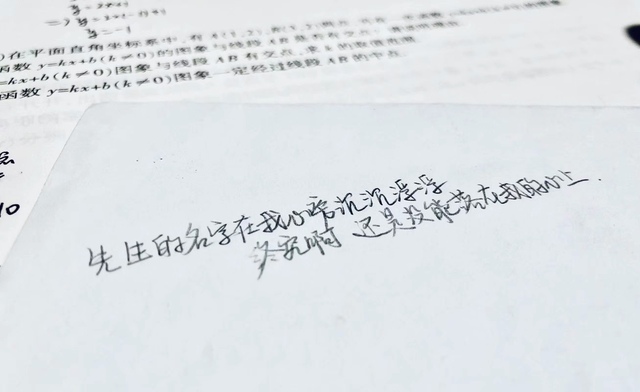 )在平面直角坐标系中,有A(1,2),
函数 y=kx+b(k≠0)的图象与线段AB有交点,求k的取值范围
=kx+b(k≠0)图象与线段AB有交点,
函数 y=kx+b(k≠0)图象一定经过线段AB的中点.
先生的名字在我心底沉沉浮浮
终究啊 还是没能落在我的心上.